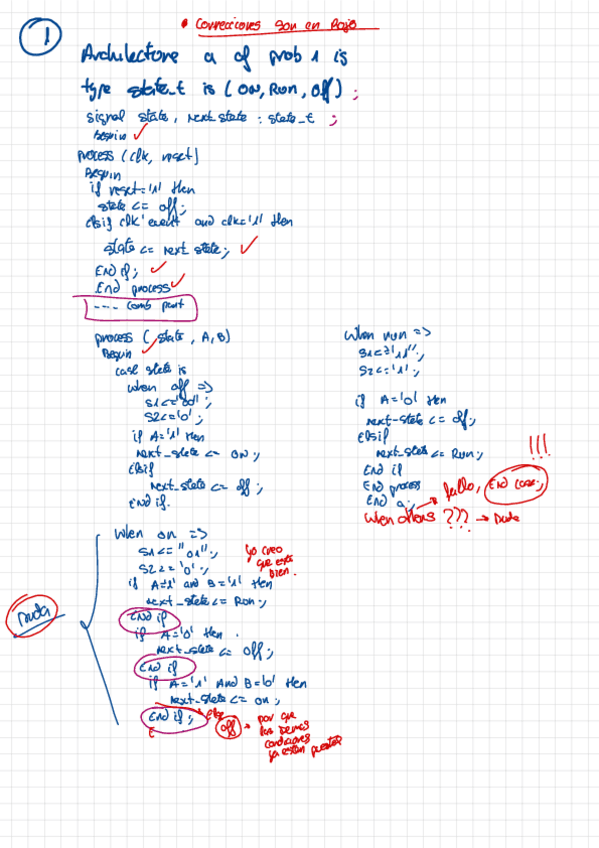 • Correcciones son en Rojo
1
Architecture a of prob 1 is
type state_t is (ON, Run, Off) ;
signal state, next_state : state_t ;
Begin ✓
process (clk, reset)
Begin
if reset='1' then
state <= off;
elsif clk'event and clk='1' then
state <= next_state; ✓
End if; ✓
End process ✓
--- comb part
process ( state , A, B)
Begin ✓
case state is
when off =>
S1<="00";
S2<='0';
if A='1' then
next_state <= on;
elsif
next_state <= off ;
End if.
When on =>
S1<= "01";
S2<= '0';
if A='1' and B='1' then
next_state <= Run;
End if
if A='0' then
next_state <= off;
End if
if A='1' AND B='0' then
next_state <= on;
End if;
else
off → por que
las demas
condiciones
ya estan puestas
yo creo
que esta
bien.
Duda
When run =>
S1<="11";
S2<='1';
if A='0' then
next-state <= off;
elsif
next_state <= Run;
End if
End process
End a;
!!!
→ fallo, End case;
When others ??? → Duda